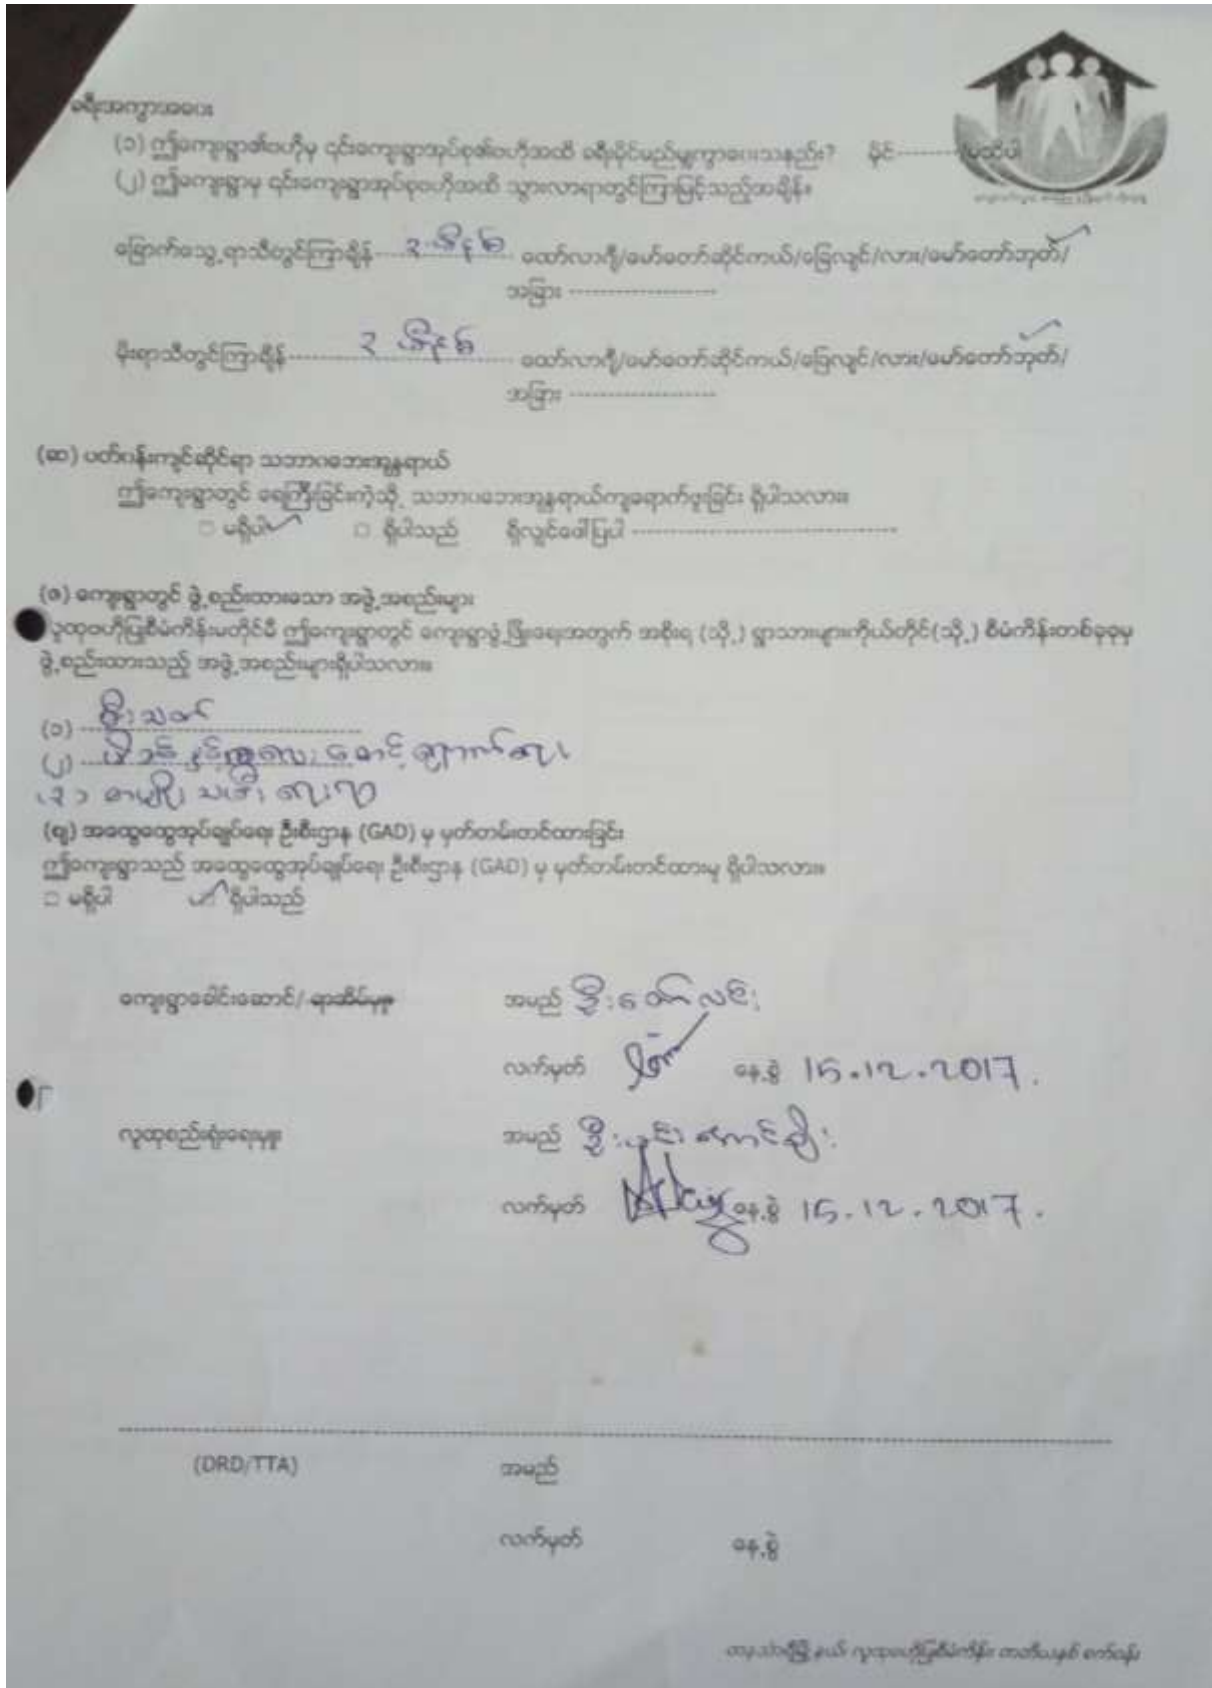 ခရီးအကွာအဝေး
(၁) ဤကျေးရွာ၏ဗဟိုမှ ၎င်းကျေးရွာအုပ်စု၏ဗဟိုအထိ ခရီးမိုင်မည်မျှကွာဝေးသနည်း? မိုင်--------/မသိပါ
(၂) ဤကျေးရွာမှ ၎င်းကျေးရွာအုပ်စုဗဟိုအထိ သွားလာရာတွင်ကြာမြင့်သည့်အချိန်။
ခြောက်သွေ့ရာသီတွင်ကြာချိန် ၃ မိနစ် ထော်လာဂျီ/မော်တော်ဆိုင်ကယ်/ခြေလျင်/လား/မော်တော်ဘုတ်/
အခြား --------------------
မိုးရာသီတွင်ကြာချိန် ၃ မိနစ် ထော်လာဂျီ/မော်တော်ဆိုင်ကယ်/ခြေလျင်/လား/မော်တော်ဘုတ်/
အခြား --------------------
(ဆ) ပတ်ဝန်းကျင်ဆိုင်ရာ သဘာဝဘေးအန္တရာယ်
ဤကျေးရွာတွင် ရေကြီးခြင်းကဲ့သို့ သဘာဝဘေးအန္တရာယ်ကျရောက်ဖူးခြင်း ရှိပါသလား။
□ မရှိပါ □ ရှိပါသည် ရှိလျှင်ဖော်ပြပါ ------------------------------------
(ဇ) ကျေးရွာတွင် ဖွဲ့စည်းထားသော အဖွဲ့အစည်းများ
လူထုဗဟိုပြုစီမံကိန်းမတိုင်မီ ဤကျေးရွာတွင် ကျေးရွာဖွံ့ဖြိုးရေးအတွက် အစိုးရ (သို့) ရွာသားများကိုယ်တိုင်(သို့) စီမံကိန်းတစ်ခုခုမှ
ဖွဲ့စည်းထားသည့် အဖွဲ့အစည်းများရှိပါသလား။
(၁) မီးသတ်
(၂) မိခင်နှင့်ကလေး စောင့်ရှောက်ရေး
(၃) အမျိုးသမီးရေးရာ
(ဈ) အထွေထွေအုပ်ချုပ်ရေး ဦးစီးဌာန (GAD) မှ မှတ်တမ်းတင်ထားခြင်း
ဤကျေးရွာသည် အထွေထွေအုပ်ချုပ်ရေး ဦးစီးဌာန (GAD) မှ မှတ်တမ်းတင်ထားမှု ရှိပါသလား။
□ မရှိပါ □ ရှိပါသည်
ကျေးရွာခေါင်းဆောင်/ ရာအိမ်မှူး အမည် ဦးဇော်လင်း
လက်မှတ် နေ့စွဲ 15.12.2017.
လူထုစည်းရုံးရေးမှူး အမည်
လက်မှတ် နေ့စွဲ 15.12.2017.
(DRD/TTA) အမည်
လက်မှတ် နေ့စွဲ
တနင်္သာရီမြို့နယ် လူထုဗဟိုပြုစီမံကိန်း တတိယနှစ် စက်ဝန်း